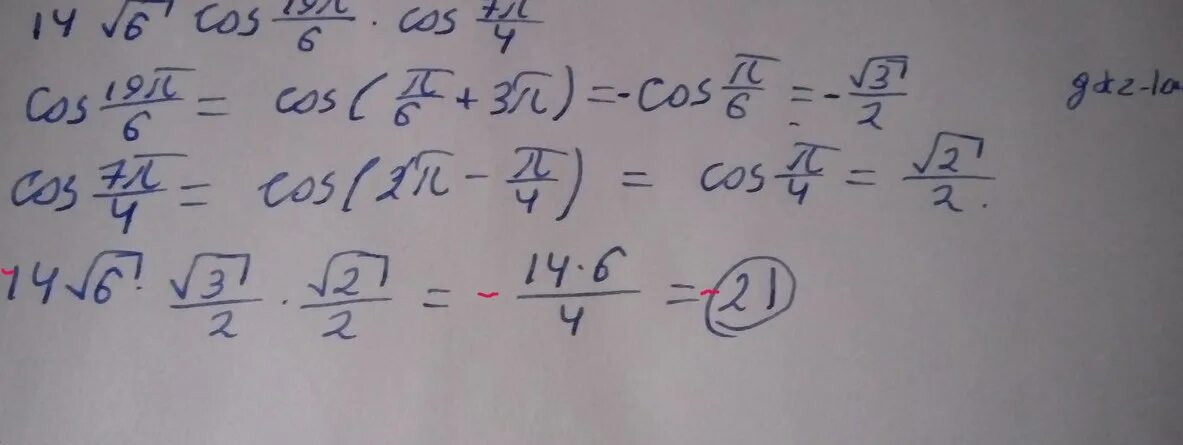 14 √6 cos 19π/6 · cos 7π/4
cos 19π/6 = cos(π/6 + 3π) = -cos π/6 = -√3/2
cos 7π/4 = cos(2π - π/4) = cos π/4 = √2/2.
-14√6 · √3/2 · √2/2 = - 14·6/4 = -21